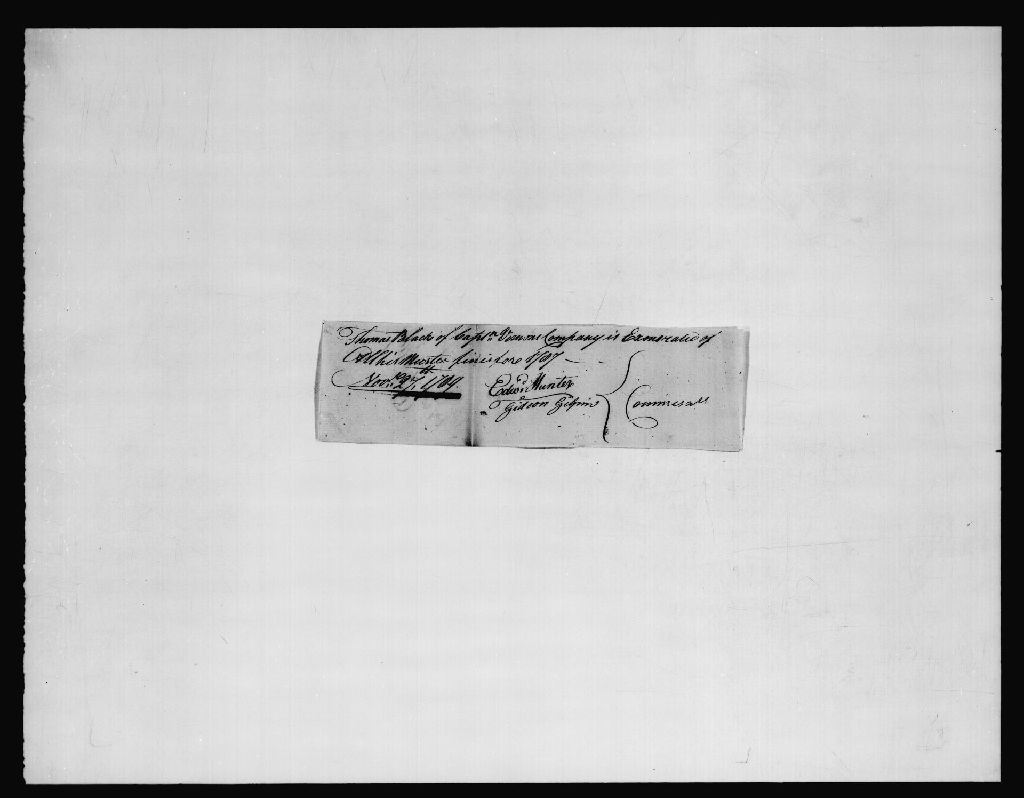 Thomas Black of Captn. Vernons Company is Exonerated of
All his Muster fines for 1787
Novr. 27th 1789
Edwd. Hunter
Gideon Gilpin
Commissrs